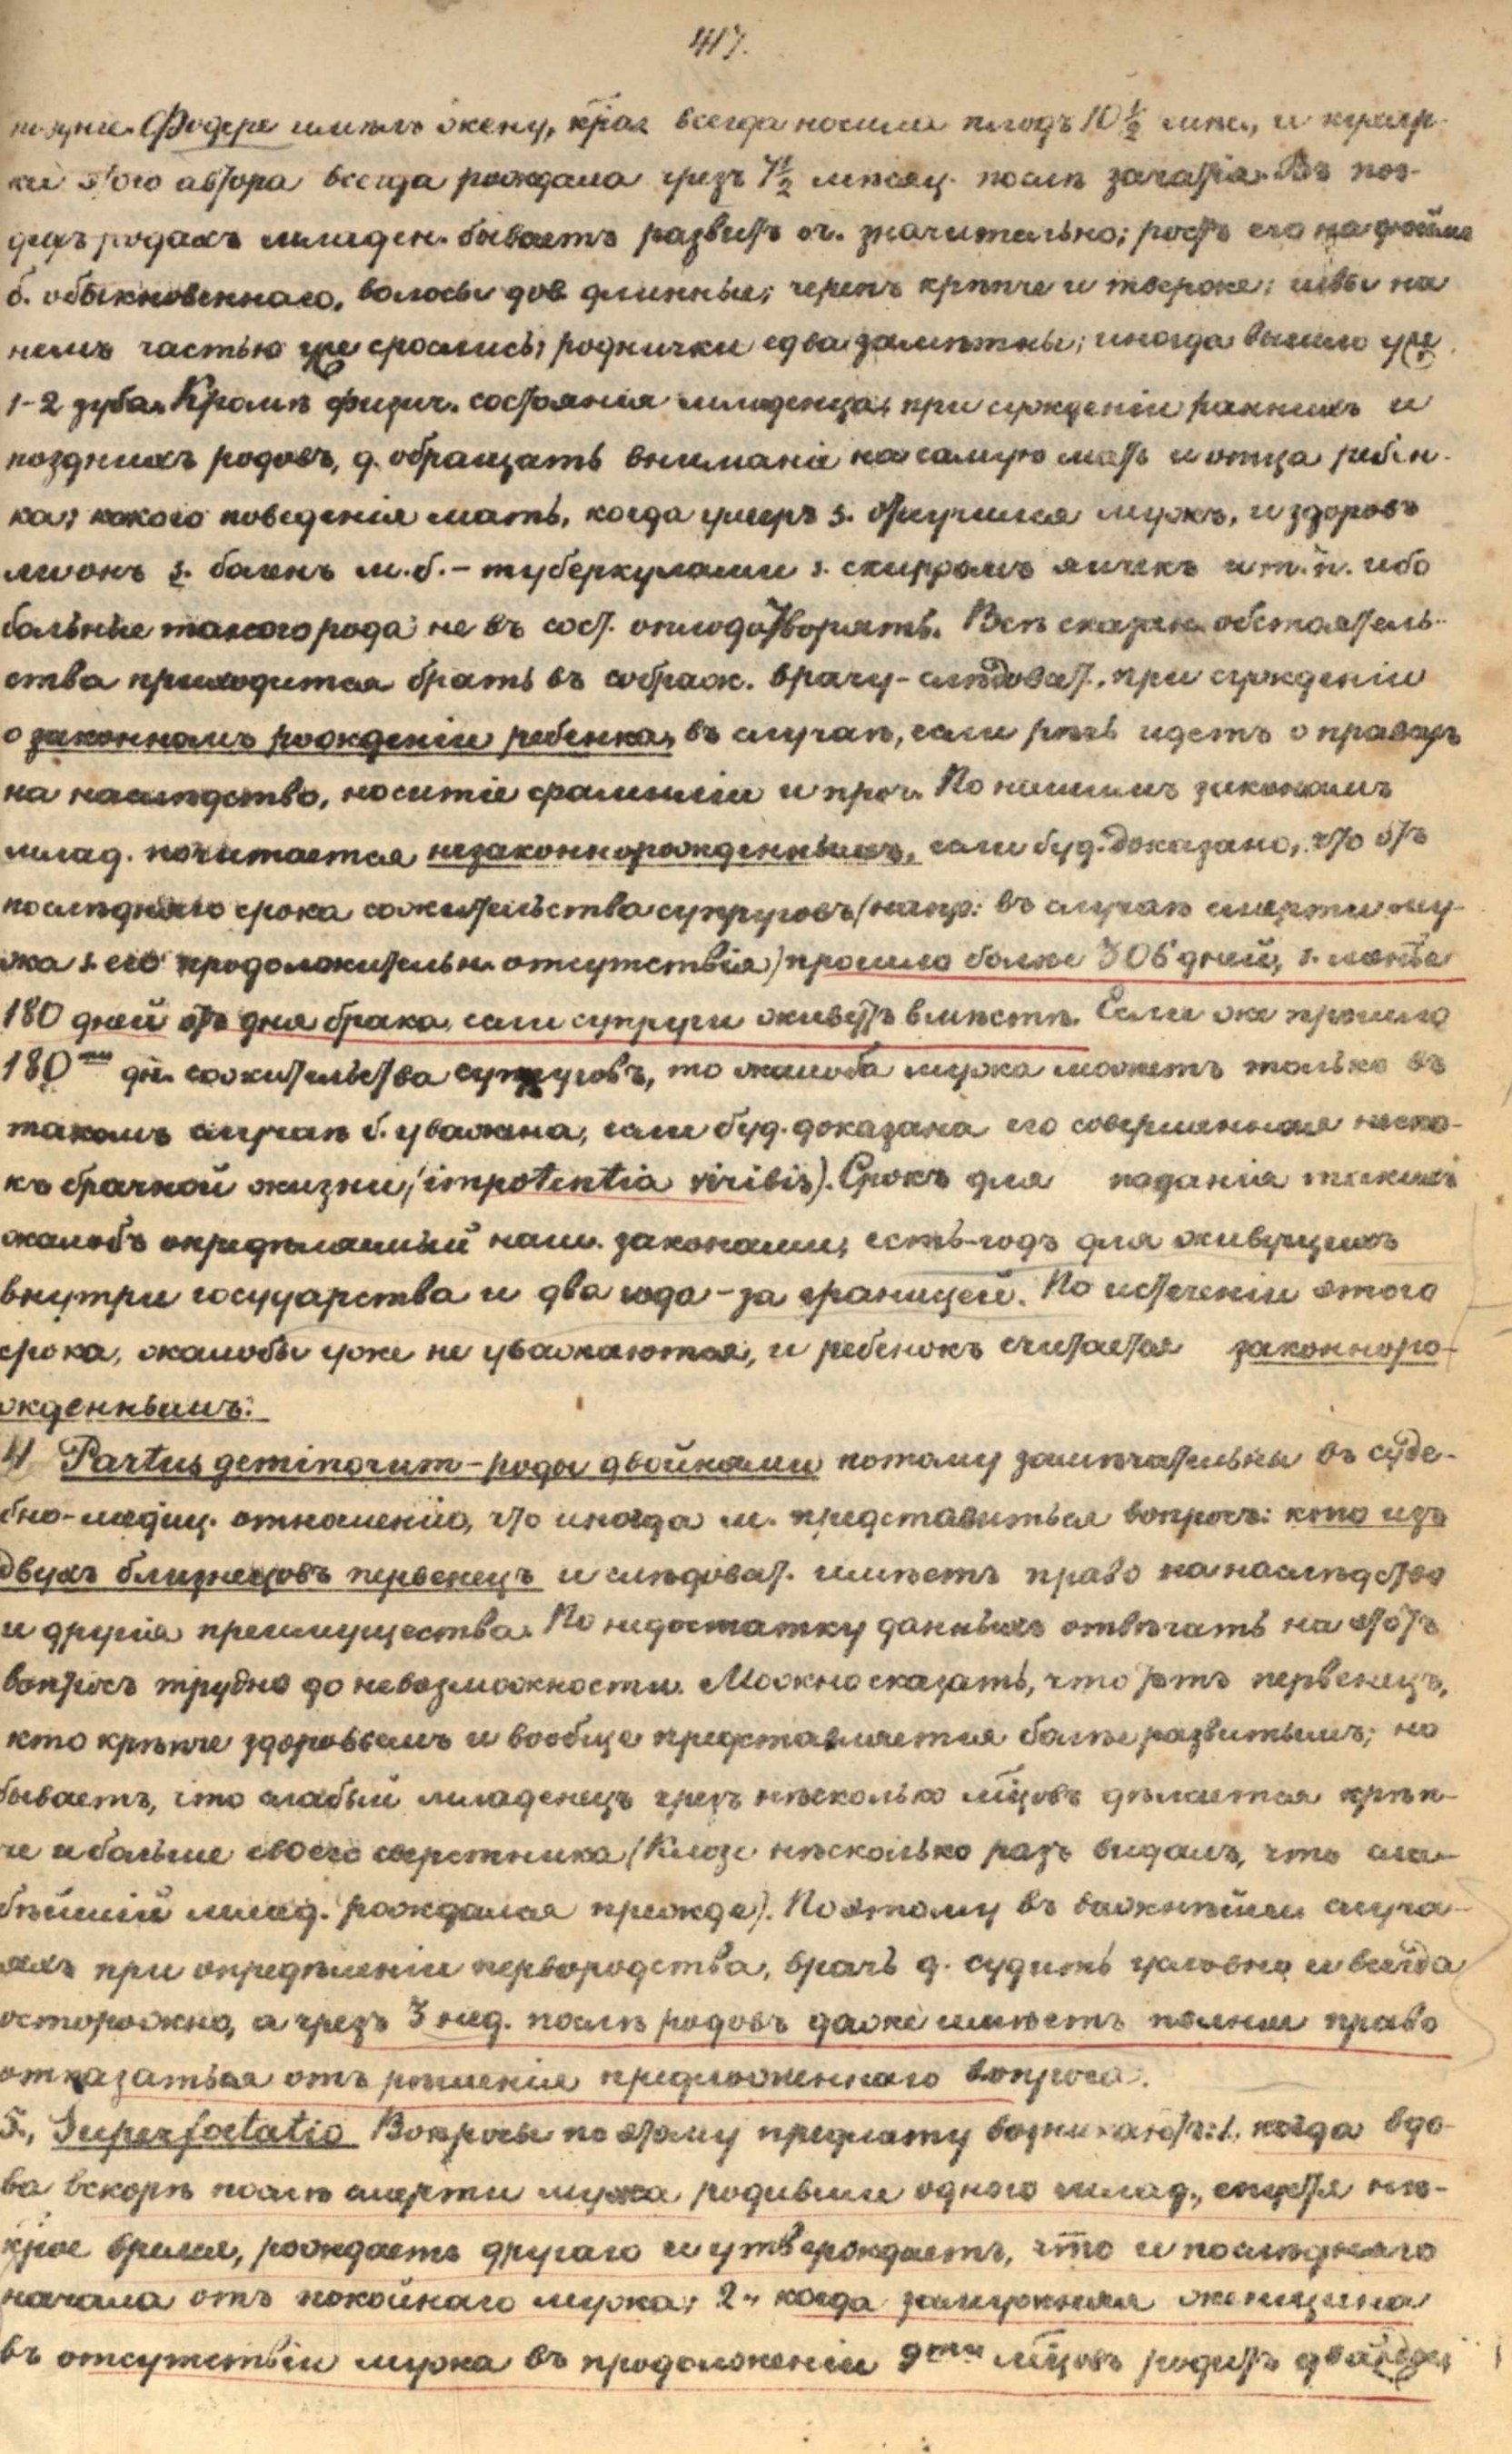 417.
Фодере имѣлъ жену, к̅р̅ая всегда носила плодъ 10 ½ мѣс., и
этого автора всегда рождала чрезъ 7½ мѣсяц. послѣ зачатія. Въ поз-
дихъ родахъ младен. бываетъ развитъ оч. значительно; ростъ его на дюймъ
б. обыкновеннаго, волосы дов. длинные; черепъ крѣпче и твероже; швы на
немъ частью уже срослись; роднички едва замѣтны; иногда вышло уже
1-2 зуба. Кромѣ физич. состоянія младенца, при сужденіи ранних и
позднихъ родовъ, д. обращать вниманіе на самую мать и отца ребен-
ка; какого поведенія мать, когда умеръ s. отлучился мужъ, и здоровъ
ли онъ s. боленъ м. б. – туберкулами s. скирромъ яичекъ и т. п. ибо
больные такого рода не въ сост. оплодотворять. Всѣ сказан. обстоятель-
ства приходится брать въ сображ. врачу-слѣдоват. при сужденіи
о законномъ рожденіи ребенка, въ случаѣ, если рѣчь идетъ о правахъ
на наслѣдство, носитіе фамиліи и проч. По нашимъ законамъ
млад. почитается незаконнорожденнымъ, если буд. доказано, что отъ
послѣдняго срока сожительства супруговъ (напр: въ случаѣ смерти му-
жа s. его продолжительн. отсутствія) прошло болѣе 306 дней, s. менѣе
180 дней отъ дня брака, если супруги живутъ вмѣстѣ. Если же прошло
180 ти дн. сожительства супруговъ, то жалоба мужа можетъ только въ
такомъ случаѣ б. уважена, если буд. доказана его совершенная неспо-
къ брачной жизни, (impotentia viribis). Срокъ для поданія такихъ
жалобъ опредѣляемый наш. законами, есть-годъ для живущихъ
внутри госуударства и два года – за границей. По истеченіи этого
срока, жалобы уже не уважаются, и ребенокъ считается законноро-
жденнымъ.
4 Partus geminorum – роды двойнями потому замѣчательны въ суде-
бно-медиц. отношеніи, что иногда м. представиться вопросъ: кто изъ
двухъ близнецовъ первенецъ и слѣдоват. имѣетъ право на наслѣдство
и другія преимущества. По недостатку данныхъ отвѣчать на этотъ
вопросъ трудно до невозможности. Можно сказать, что тотъ первенецъ,
кто крѣпче здоровьемъ и вообще представляется болѣе развитымъ; но
бываетъ, что слабый младенецъ чрезъ нѣсколько мѣ̅цовъ дѣлается крѣп-
че и больше своего сверстника (Клозе нѣсколько разъ видалъ, что сла-
бѣйшій млад. рождался прежде). По этому въ важнѣйши случа-
яхъ при опредѣленіи первородства, врачъ д. судить условно и всегда
осторожно, а чрезъ 3 нед. послѣ родовъ даже имѣетъ полное право
отказаться отъ рѣшенія предложеннаго вопроса.
5., Superfoetatio Вопросы по этому предмету возникаютъ: 1. когда вдо-
ва вскорѣ послѣ смерти мужа родивши одного млад., спустя нѣ-
к̅р̅ое время, рождаетъ другаго и утверждаетъ, что и послѣдняго
начала отъ покойнаго мужа; 2., когда замужняя женщина
въ отсутствіи мужа въ продолженіи 9ти мѣ̅цовъ родитъ дважды